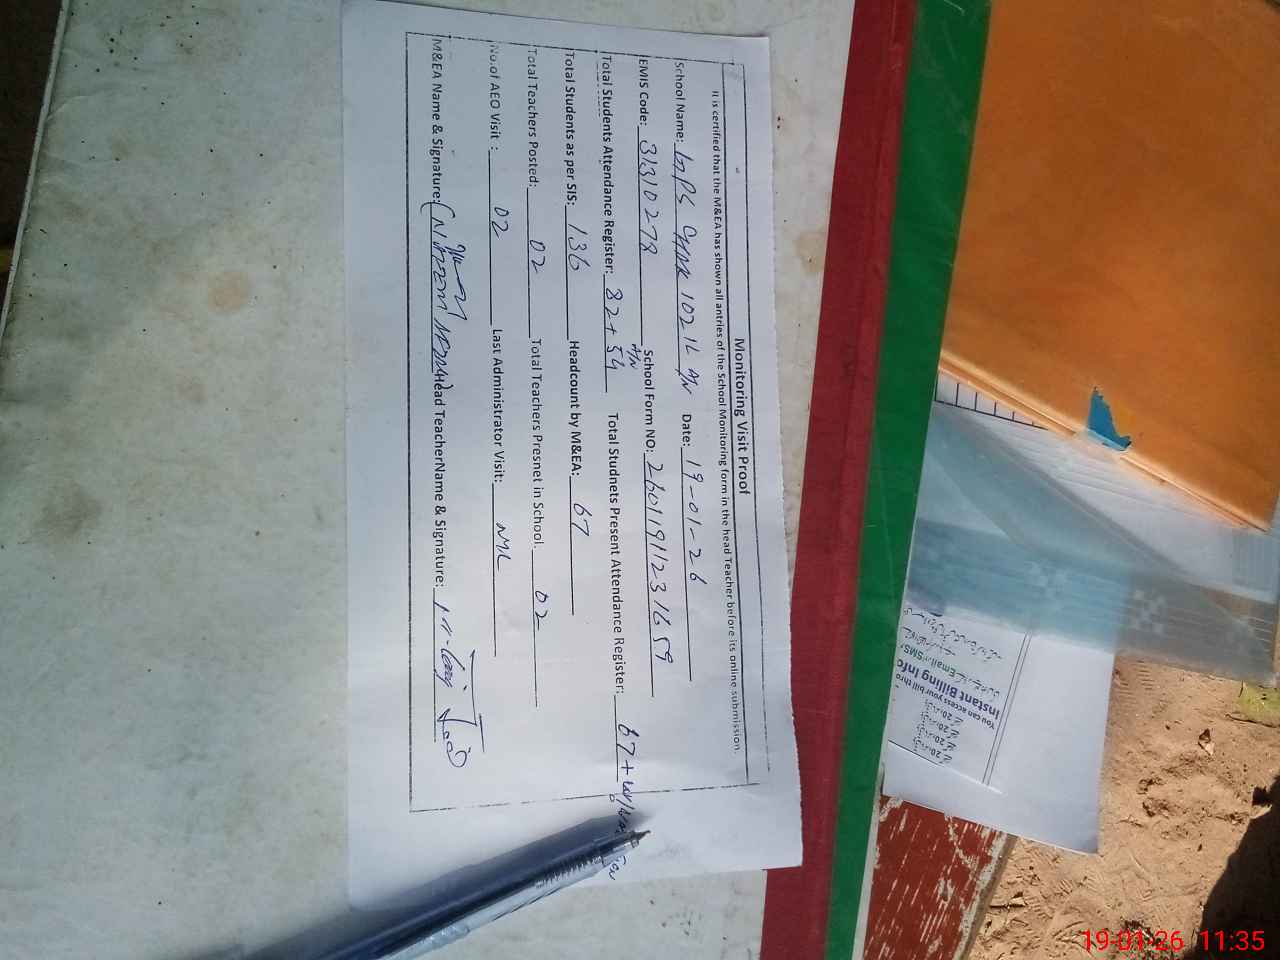 Monitoring Visit Proof
It is certified that the M&EA has shown all antries of the School Monitoring form in the head Teacher before its online submission.
School Name: GPS CHAK 102 1L A/N Date: 19-01-26
EMIS Code: 31310278 School Form NO: 26011911231659
Total Students Attendance Register: 82+54 A/N Total Studnets Present Attendance Register: 67+
Total Students as per SIS: 136 Headcount by M&EA: 67
Total Teachers Posted: 02 Total Teachers Presnet in School. 02
No.of AEO Visit : 02 Last Administrator Visit: NIL
M&EA Name & Signature: Head TeacherName & Signature:
Instant Billing Info
You can access your bill thro
Email/SMS
19-01-26 11:35